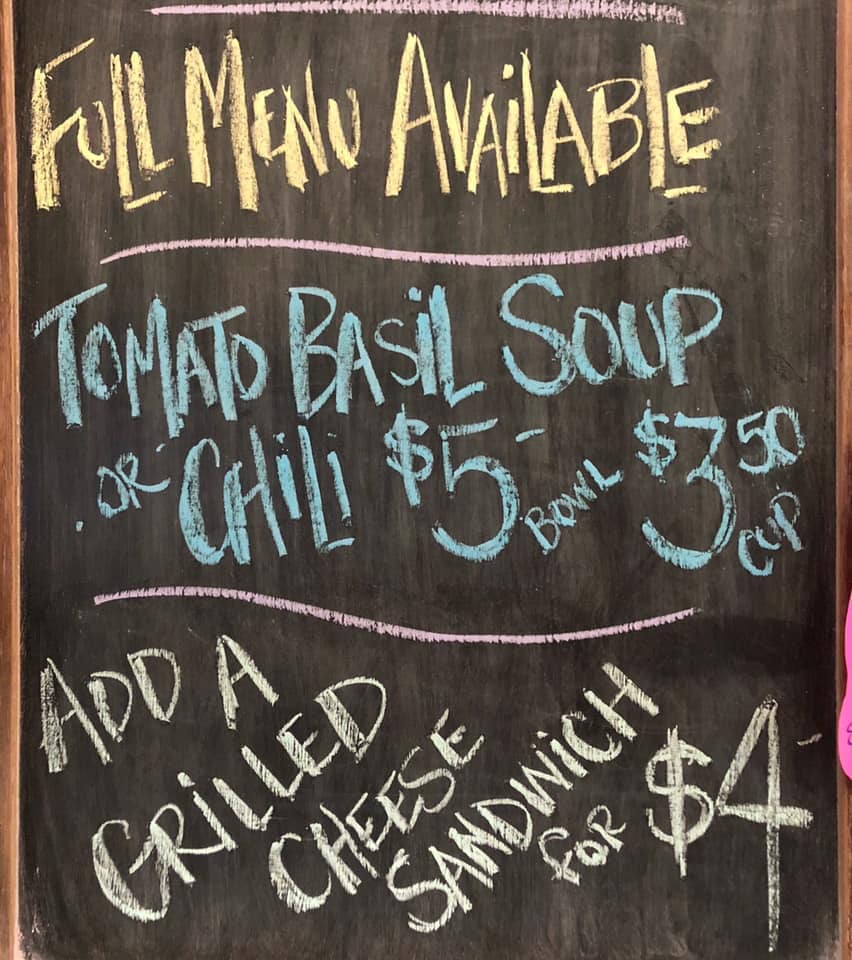 FULL MENU AVAILABLE
TOMATO BASIL SOUP
OR CHILI $5- BOWL $3 50 CUP
ADD A
GRILLED
CHEESE
SANDWICH
FOR $4-